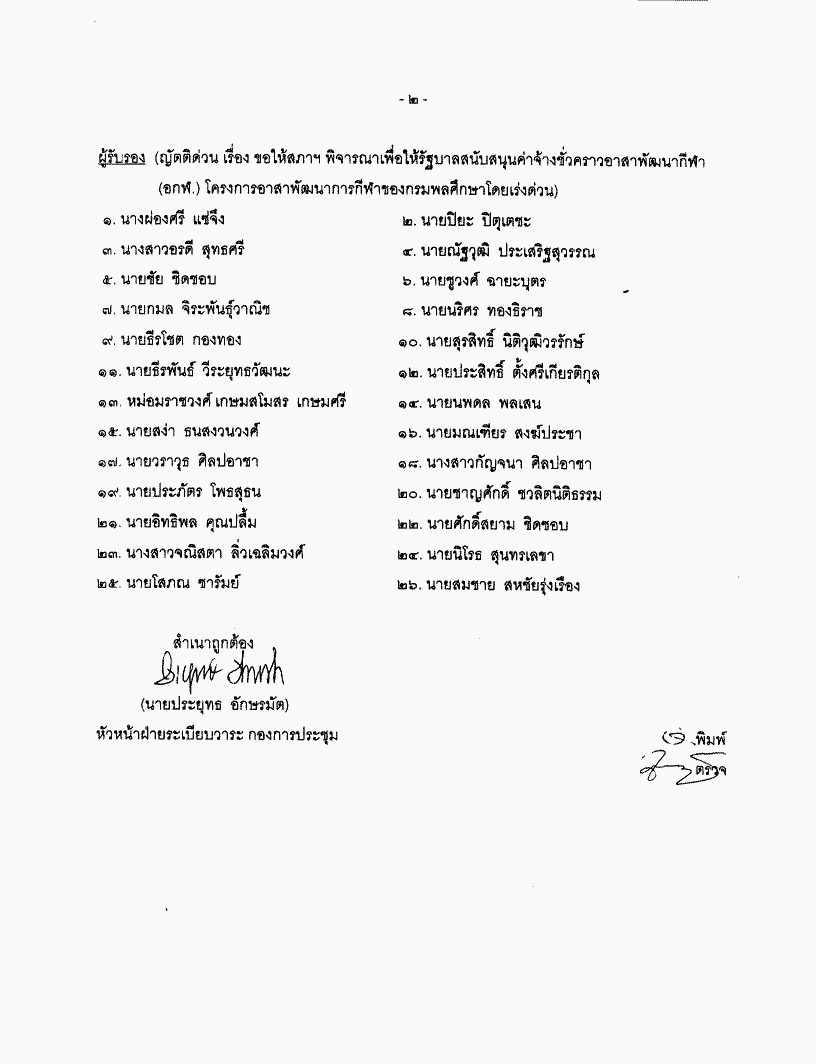 - ๒ -
ผู้รับรอง (ญัตติด่วน เรื่อง ขอให้สภาฯ พิจารณาเพื่อให้รัฐบาลสนับสนุนค่าจ้างชั่วคราวอาสาพัฒนากีฬา
(อกฬ.) โครงการอาสาพัฒนาการกีฬาของกรมพลศึกษาโดยเร่งด่วน)
๑. นางผ่องศรี แซ่จึง ๒. นายปิยะ ปิตุเตชะ
๓. นางสาวอรดี สุทธศรี ๔. นายณัฐวุฒิ ประเสริฐสุวรรณ
๕. นายชัย ชิดชอบ ๖. นายชูวงศ์ ฉายะบุตร
๗. นายกมล จิระพันธุ์วาณิช ๘. นายนริศร ทองธิราช
๙. นายธีรโชต กองทอง ๑๐. นายสุรสิทธิ์ นิติวุฒิวรรักษ์
๑๑. นายธีรพันธ์ วีระยุทธวัฒนะ ๑๒. นายประสิทธิ์ ตั้งศรีเกียรติกุล
๑๓. หม่อมราชวงศ์ เกษมสโมสร เกษมศรี ๑๔. นายนพดล พลเสน
๑๕. นายสง่า ธนสงวนวงศ์ ๑๖. นายมณเฑียร สงฆ์ประชา
๑๗. นายวราวุธ ศิลปอาชา ๑๘. นางสาวกัญจนา ศิลปอาชา
๑๙. นายประภัตร โพธสุธน ๒๐. นายชาญศักดิ์ ชวลิตนิติธรรม
๒๑. นายอิทธิพล คุณปลื้ม ๒๒. นายศักดิ์สยาม ชิดชอบ
๒๓. นางสาวจณิสตา ลิ่วเฉลิมวงศ์ ๒๔. นายนิโรธ สุนทรเลขา
๒๕. นายโสภณ ซารัมย์ ๒๖. นายสมชาย สหชัยรุ่งเรือง
สำเนาถูกต้อง
(นายประยุทธ อักษรมัต)
หัวหน้าฝ่ายระเบียบวาระ กองการประชุม
พิมพ์
ตรวจ